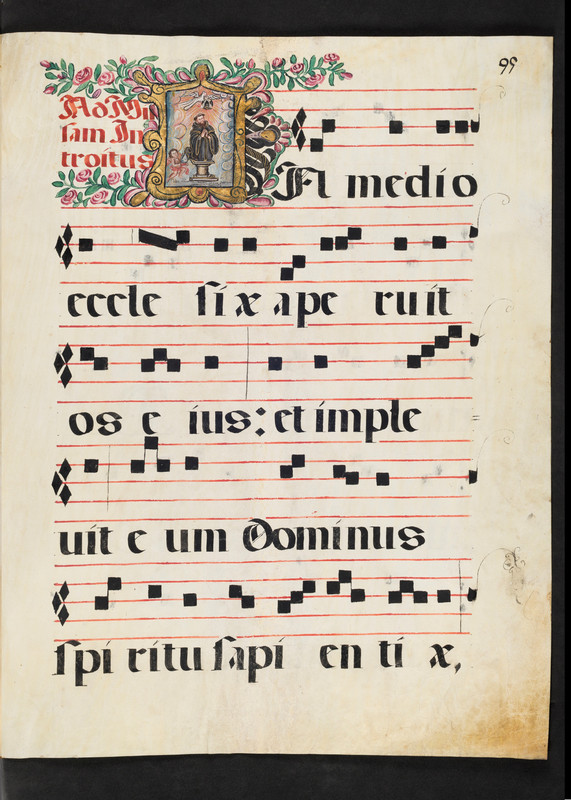 99
Ad Mis
sam In
troitus
N medio
eccle siæ ape ruit
os e ius: et imple
uit e um Dominus
spi ritu sapi en ti æ,